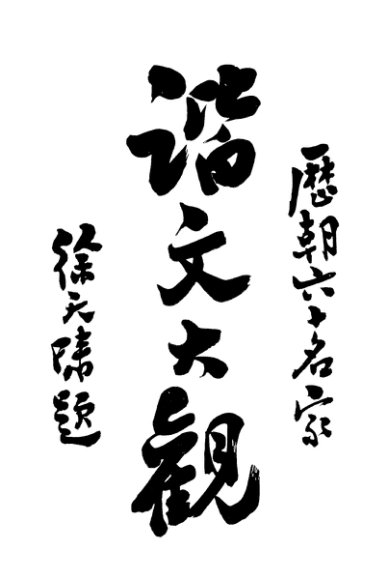 歷朝六十名家
諧文大觀
徐天啸題